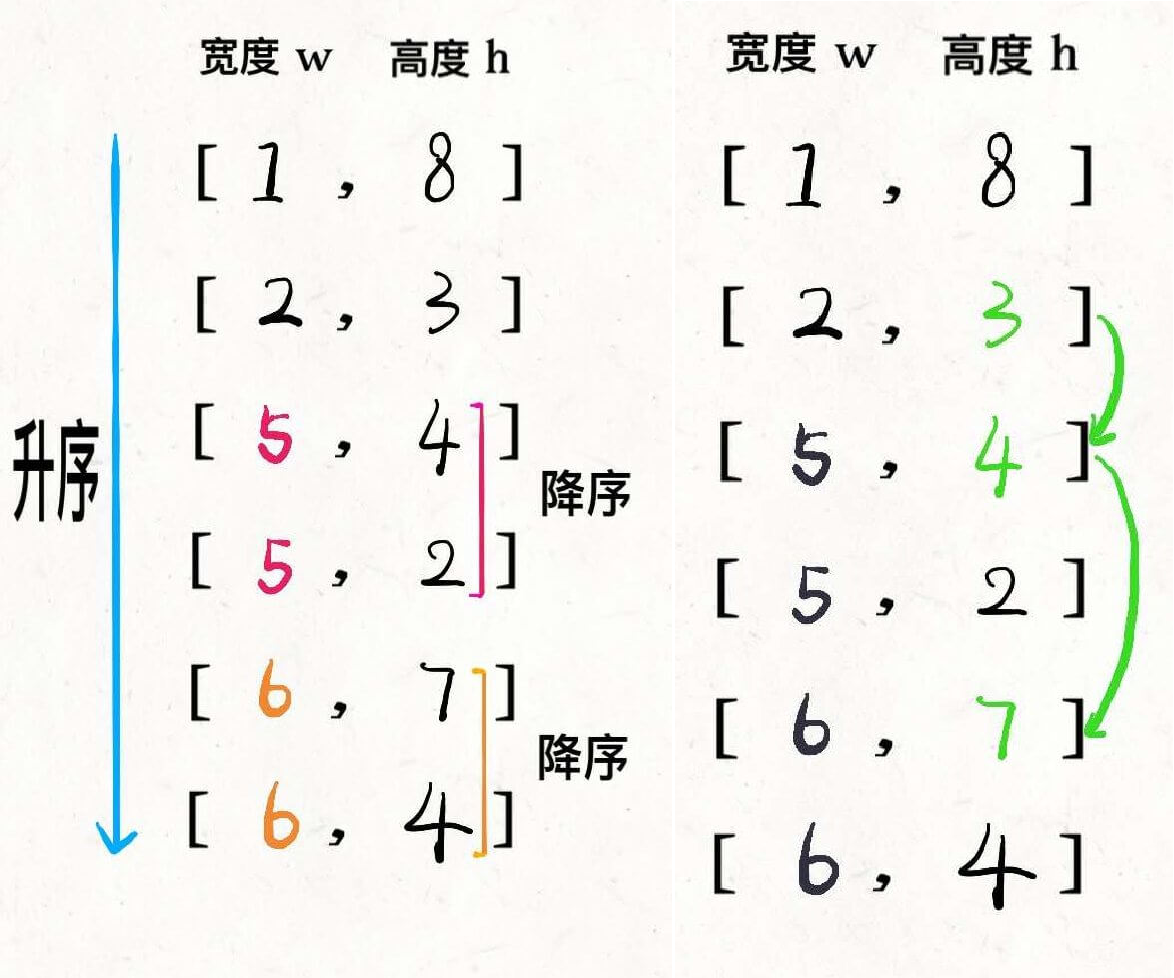 宽度 w 高度 h
[ 1 , 8 ]
[ 2 , 3 ]
[ 5 , 4 ]
[ 5 , 2 ]
[ 6 , 7 ]
[ 6 , 4 ]
升序
降序
降序
宽度 w 高度 h
[ 1 , 8 ]
[ 2 , 3 ]
[ 5 , 4 ]
[ 5 , 2 ]
[ 6 , 7 ]
[ 6 , 4 ]